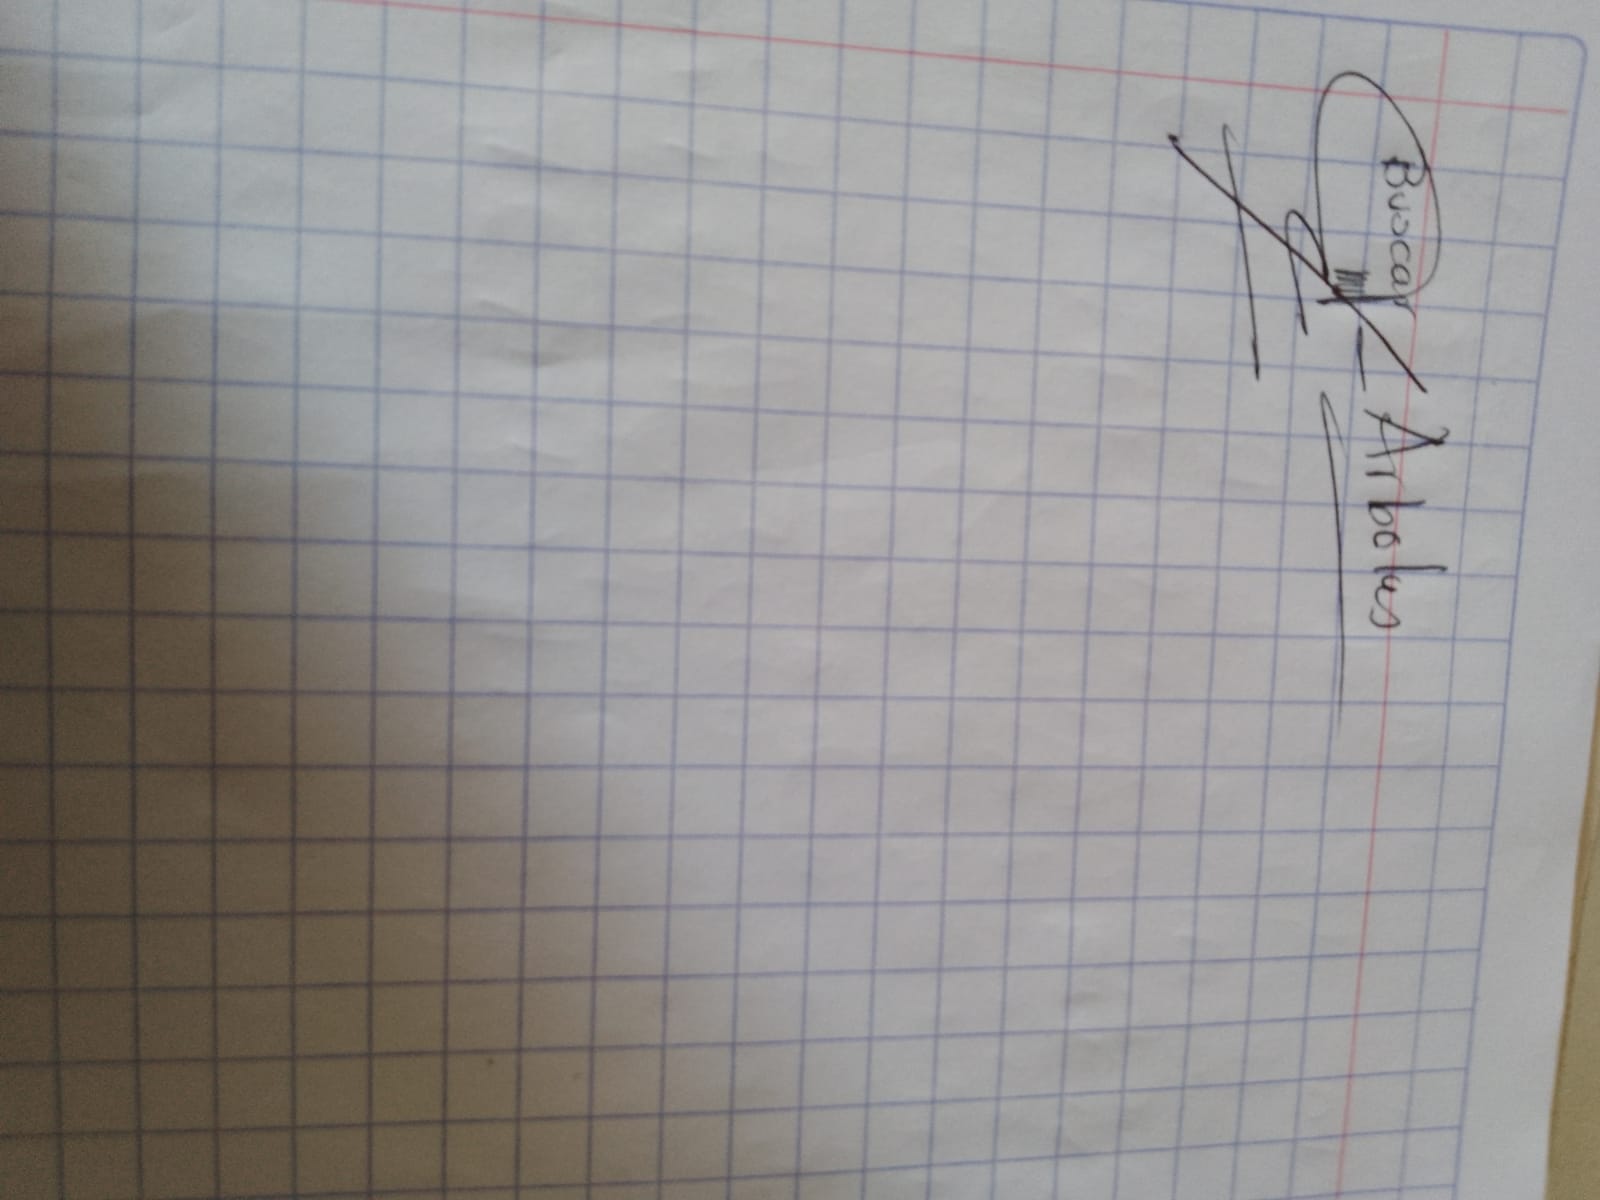 Buscar
Arbolus